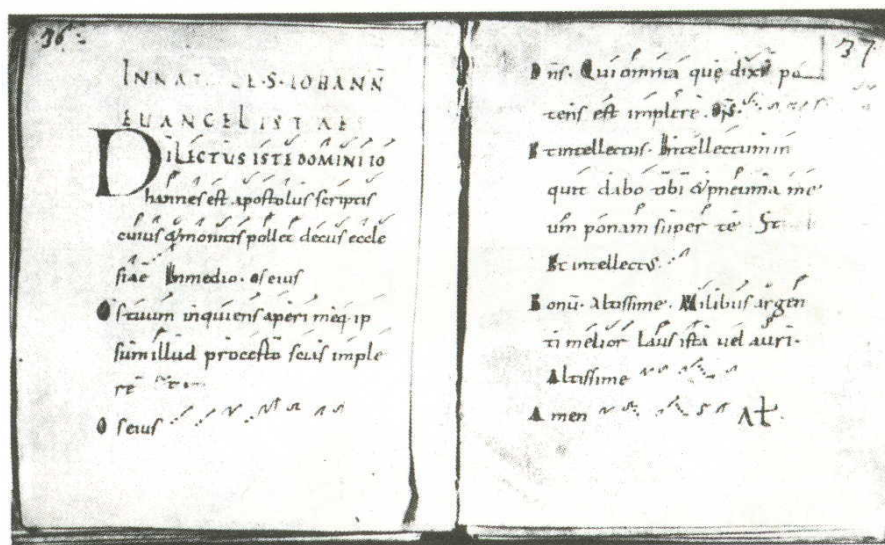 36
IN NAT L E · S · IOHANN̄
EUANGELISTAE
DILECTUS ISTE DOMINI IO
hannes est apostolus scriptis
cuius & monitis pollet decus eccle
siae Inmedio · os eius
Os tuum inquiens aperi meq· ip
sum illud procesto scias imple
re
Os eius
37
Dn̄s · Qui omnia que dixit po
tens est implere · Dn̄s ·
Et intellectus · Intellectum in
quit dabo tibi & pneuma me
um ponam super te St
Et intellectus ·
Bonū · Altissime · Milibus argen
ti melior laus ista uel auri ·
Altissime
Amen